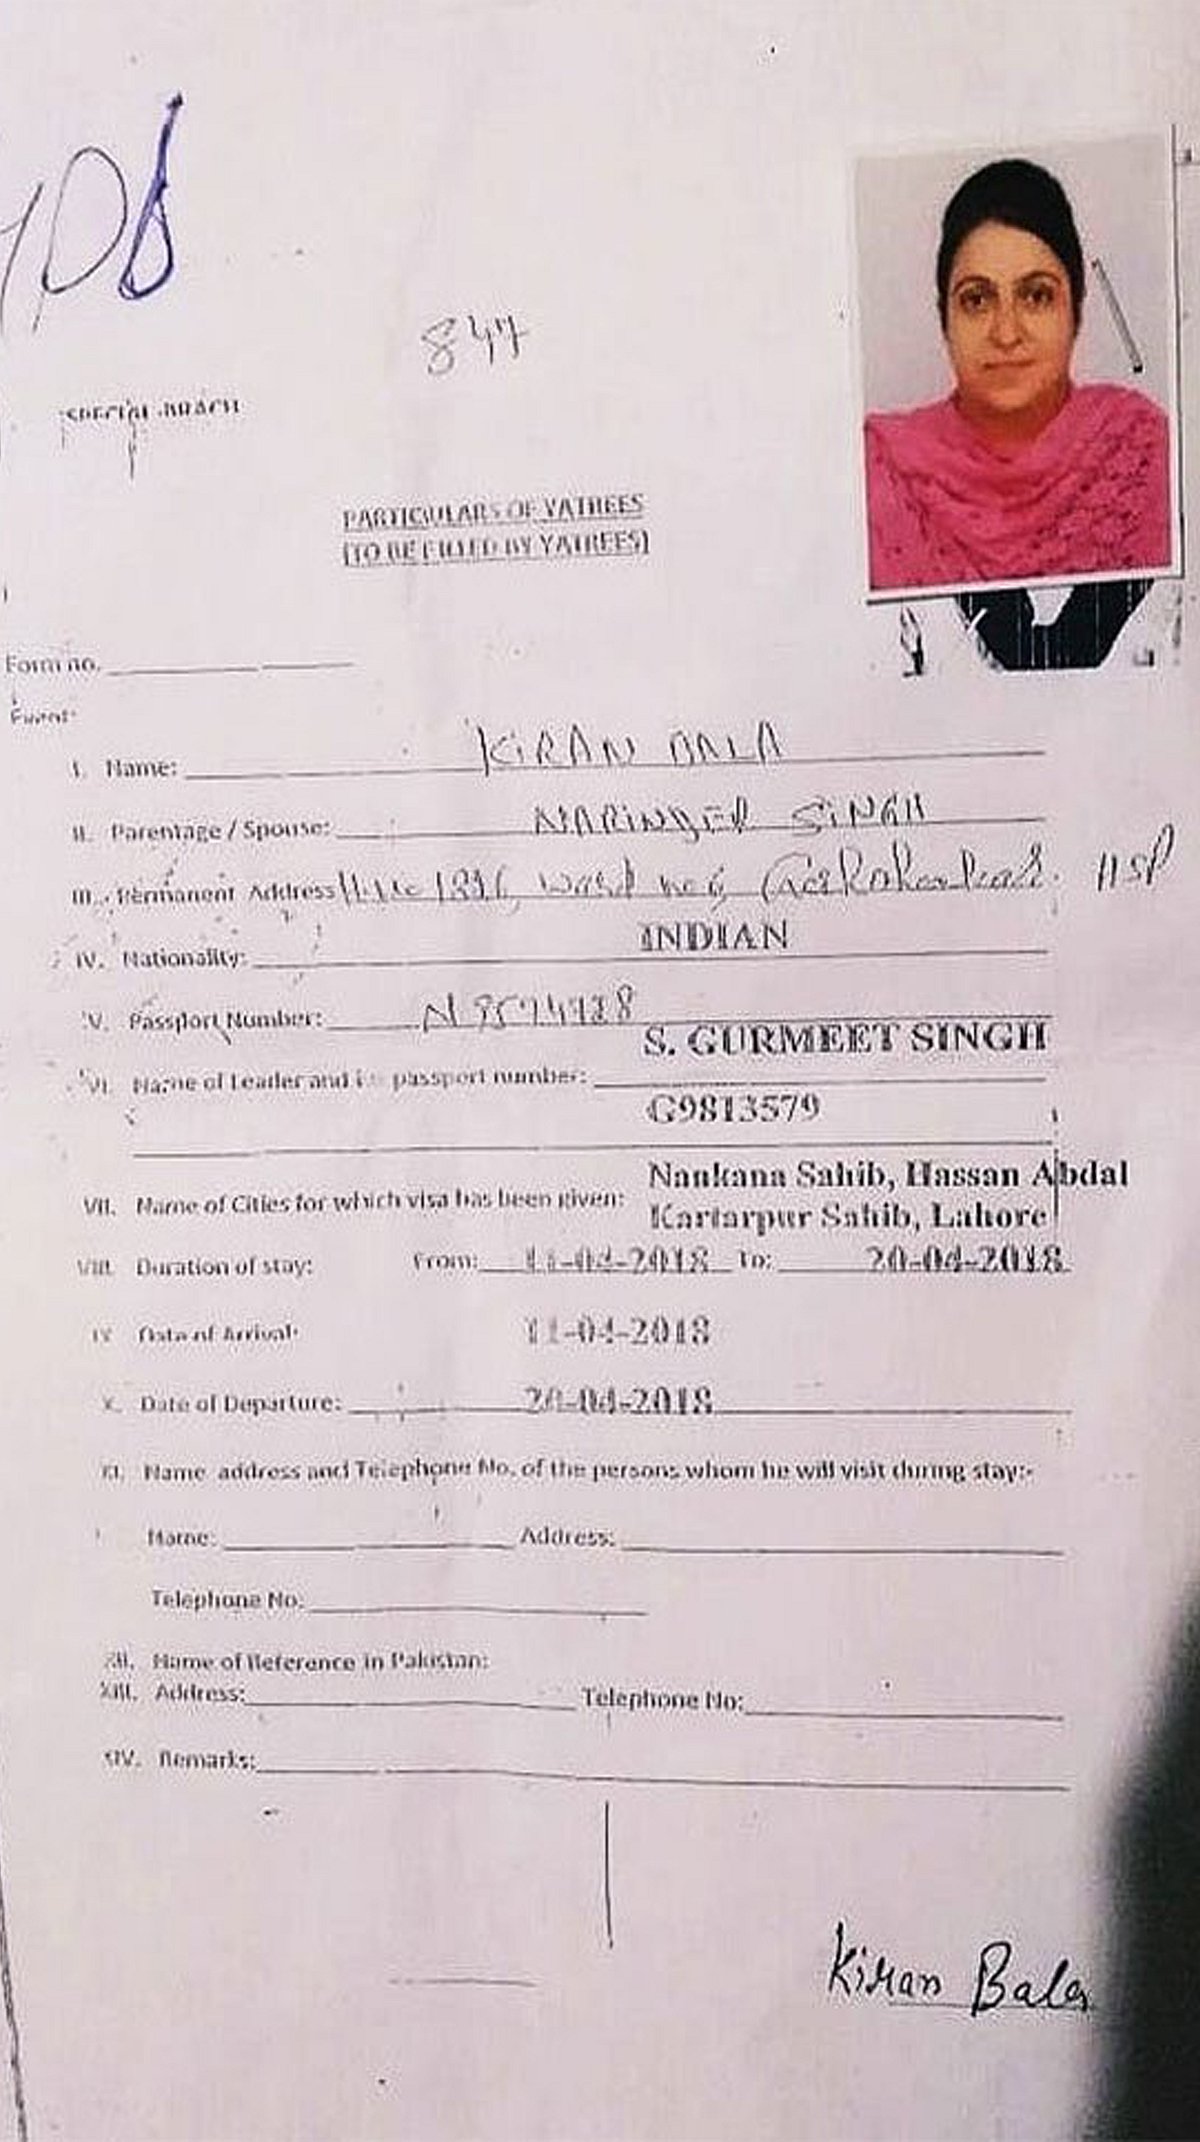 847
SPECIAL BRACH
PARTICULARS OF YATREES
(TO BE FILLED BY YATREES)
Form no.
Event:
I. Name: KIRAN BALA
II. Parentage / Spouse: NARINDER SINGH
III. Permanent Address ward no 6, HSP
IV. Nationality: INDIAN
V. Passport Number:
S. GURMEET SINGH
VI. Name of Leader and passport number:
G9813579
Nankana Sahib, Hassan Abdal
VII. Name of Cities for which visa has been given:
Kartarpur Sahib, Lahore
VIII. Duration of stay: From: 11-04-2018 To: 20-04-2018
IX Date of Arrival: 11-04-2018
X. Date of Departure: 20-04-2018
XI. Name address and Telephone No. of the persons whom he will visit during stay:-
Name: Address:
Telephone No.
XII. Name of Reference in Pakistan:
XIII. Address: Telephone No:
XIV. Remarks:
Kiran Bala